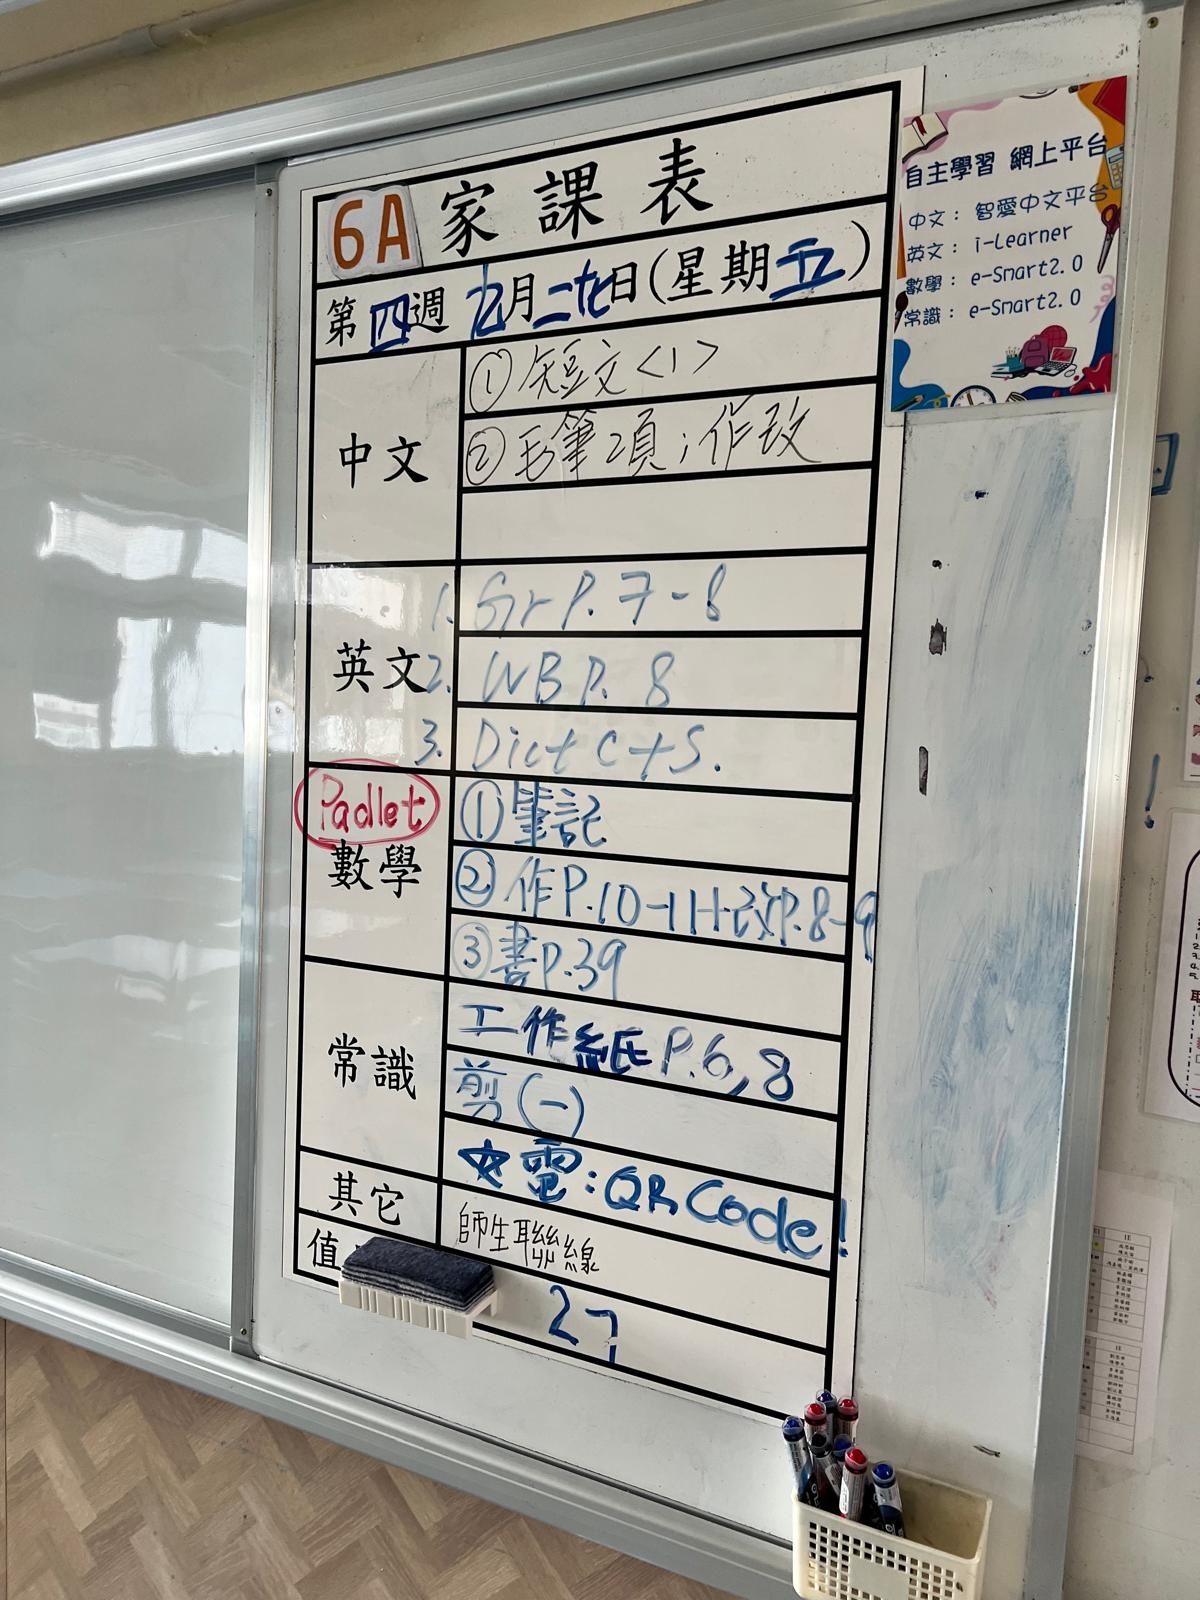 6A 家課表
第四週 九月二十九日(星期五)
中文
① 短文<1>
② 毛筆2頁;作改
英文
1. Gr P. 7-8
2. WB P. 8
3. Dict C+S.
Padlet
數學
①筆記
②作P.10-11+改P.8-9
③書P.39
常識
工作紙P.6,8
剪(一)
☆電:QR Code!
其它
師生聯線
值
27
自主學習 網上平台
中文: 智愛中文平台
英文: i-Learner
數學: e-Smart2.0
常識: e-Smart2.0